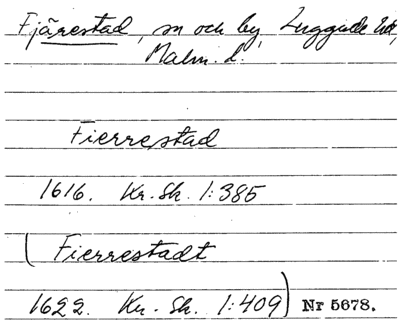 Fjärestad, sn och by, Luggude hd,
Malm. l.
Fierrestad
1616. Kr. Sk. 1:385
(Fierrestadt
1622. Kr. Sk. 1:409) Nr 5678.